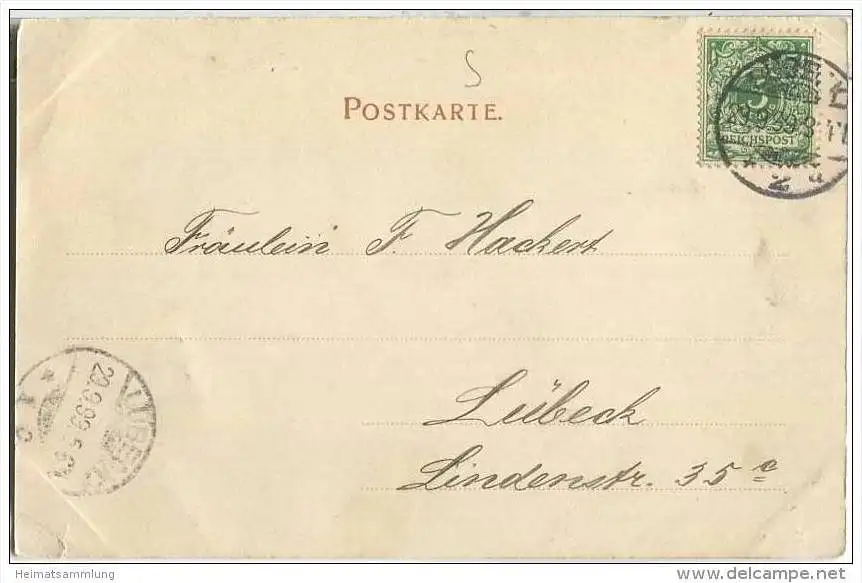 S
POSTKARTE.
5
REICHSPOST
Fräulein F. Hackert
Lübeck
Lindenstr. 35 c
29.9.99
Heimatsammlung
www.delcampe.net